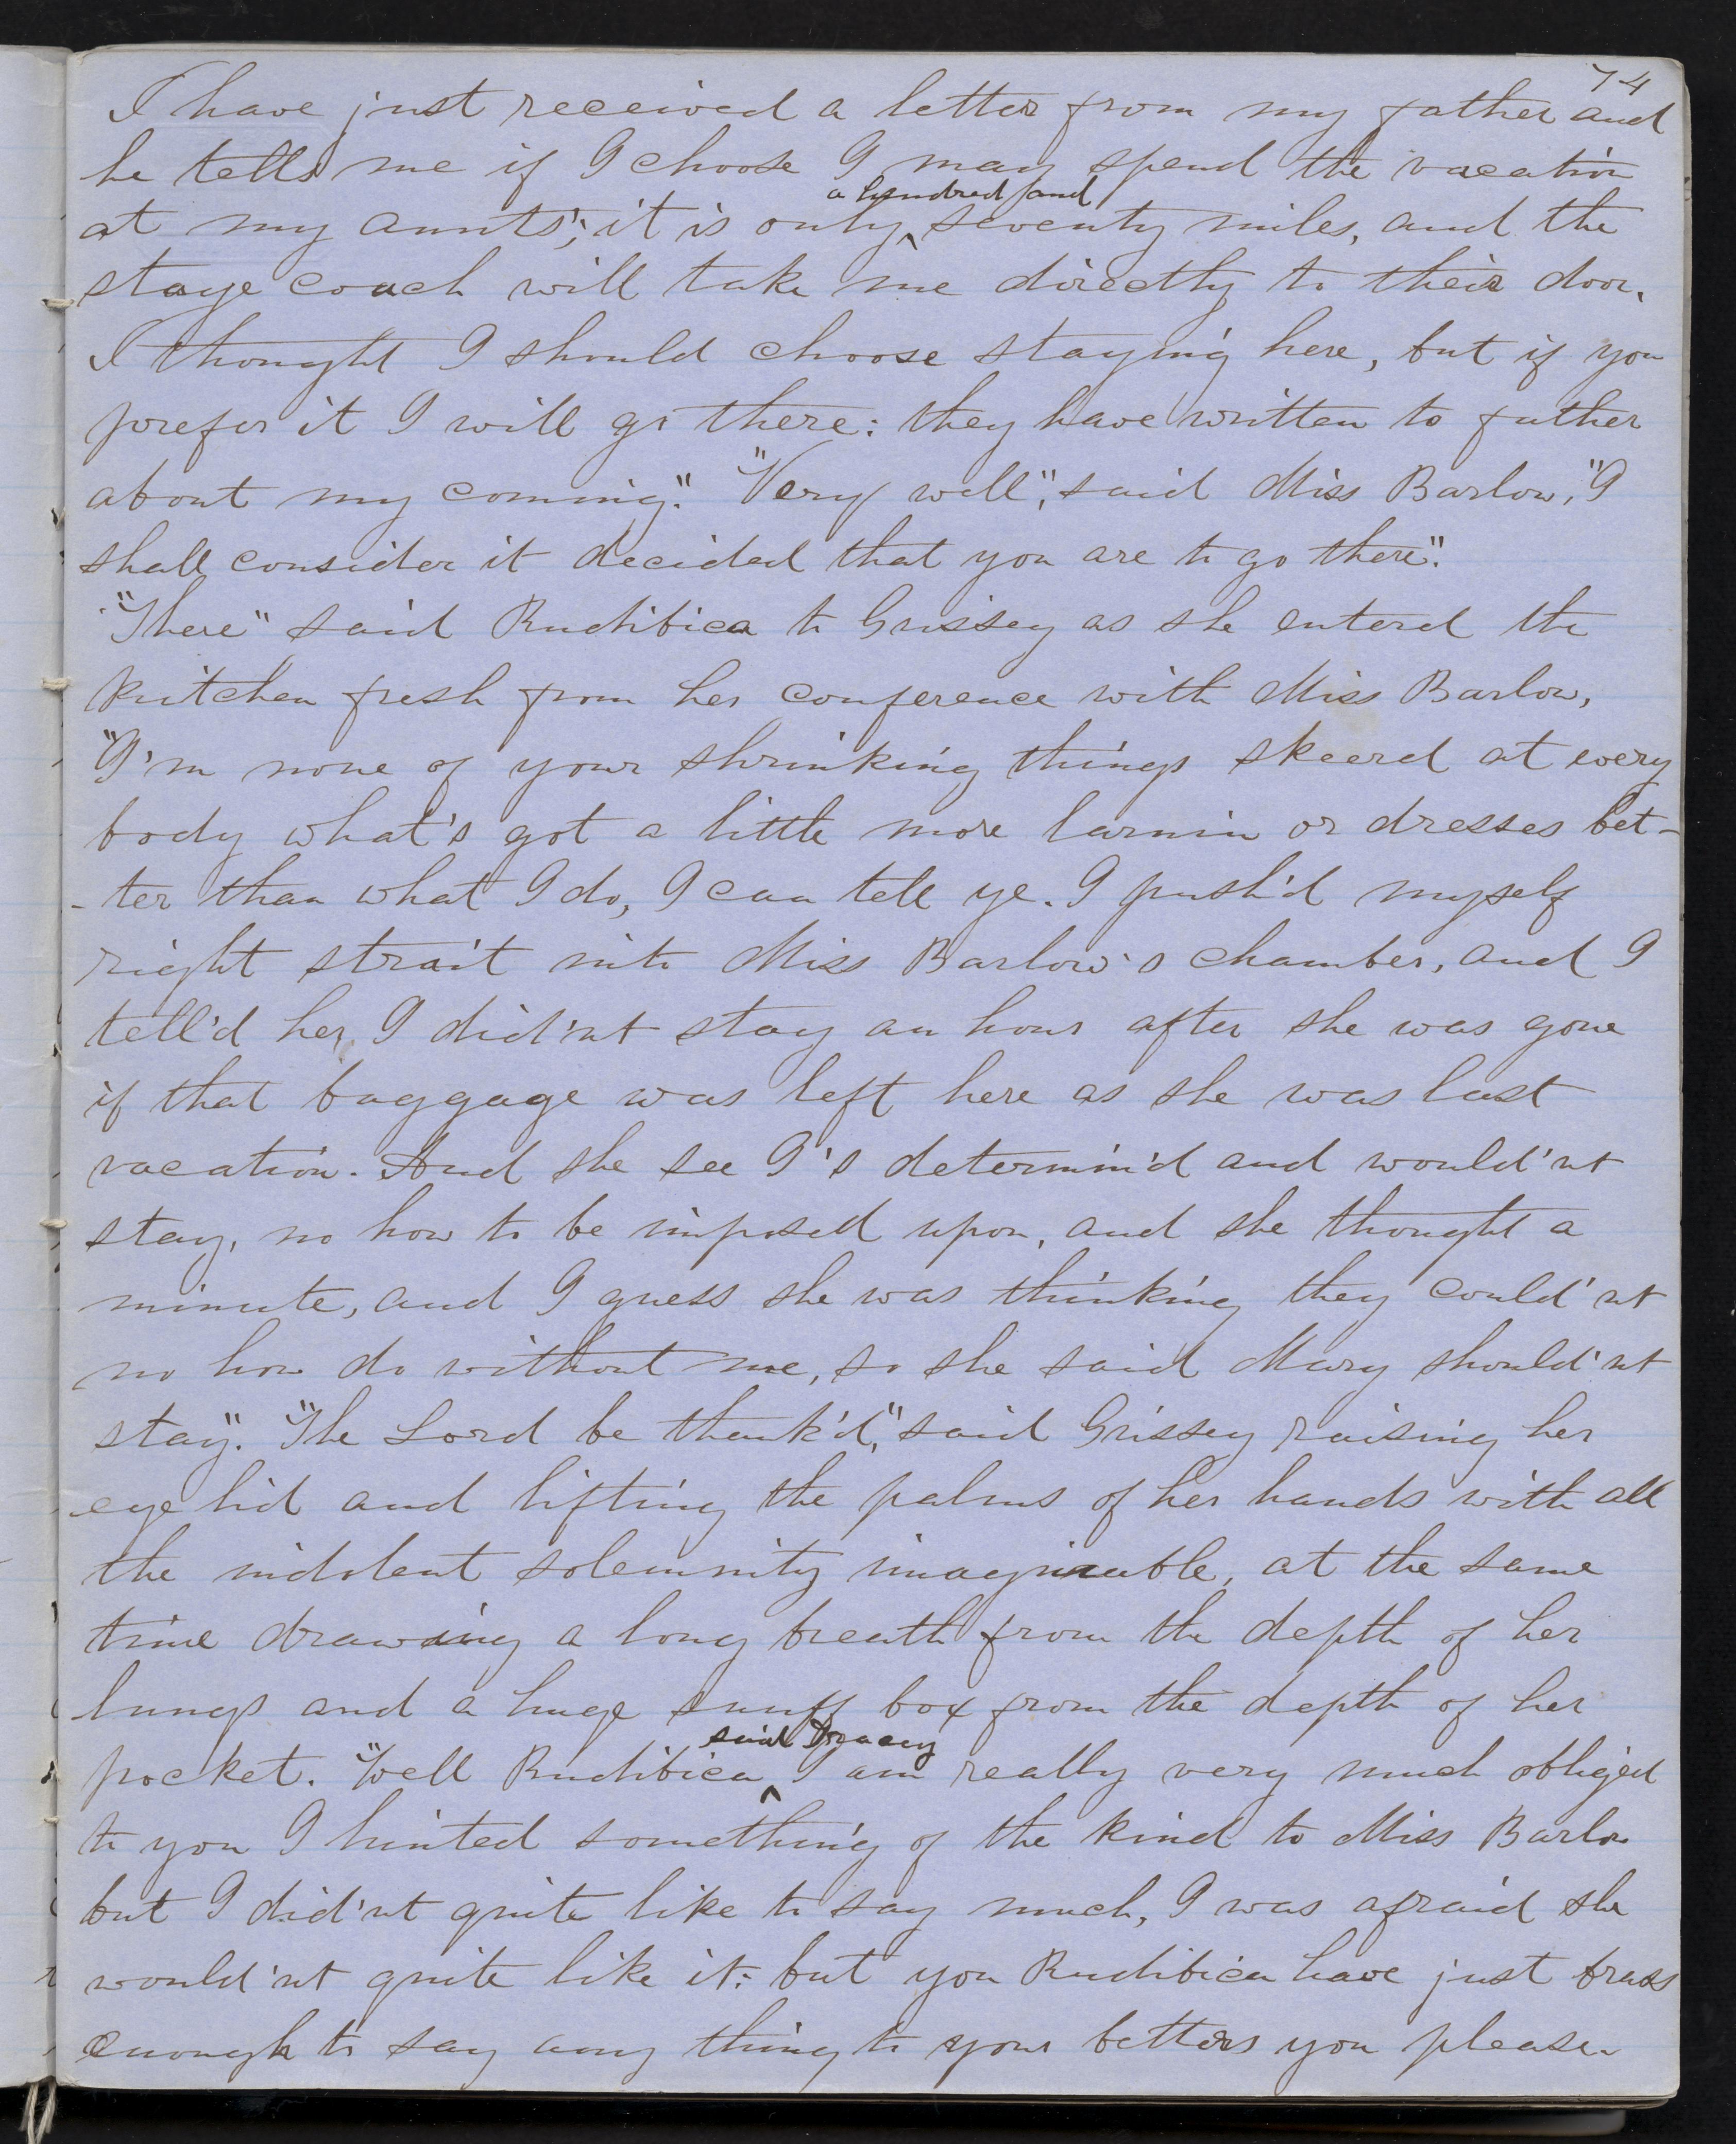 74
I have just received a letter from my father and
he tells me if I choose I may spend the vacation
a hundred and
at my aunts'; it is only ^ seventy miles, and the
stage coach will take me directly to their door.
I thought I should choose staying here, but if you
prefer it I will go there: they have written to father
about my coming." "Very well", said Miss Barlow, "I
shall consider it decided that you are to go there".
"There" said Rudibica to Grissey as she entered the
kitchen fresh from her conference with Miss Barlow,
"I'm none of your shrinking things skeerd at every
body what's got a little more larnin or dresses bet-
-ter than what I do, I can tell ye. I push'd myself
right strait into Miss Barlow's chamber, and I
tell'd her I did'nt stay an hour after she was gone
if that baggage was left here as she was last
vacation. And she see I's determin'd and would'nt
stay, no how to be imposed upon, and she thought a
minute, and I guess she was thinking they could'nt
no how do without me, so she said Mary should'nt
stay". "The Lord be thank'd", said Grissey raising her
eye lid and lifting the palms of her hands with all
the indolent solemnity imaginable, at the same
time drawing a long breath from the depth of her
lungs and a huge snuff box from the depth of her
said Tracey
pocket. "Well Rudibica ^ I am really very much obliged
to you I hinted something of the kind to Miss Barlow
but I did'nt quite like to say much, I was afraid she
would'nt quite like it: but you Rudibica have just brass
enough to say any thing to your betters you please.